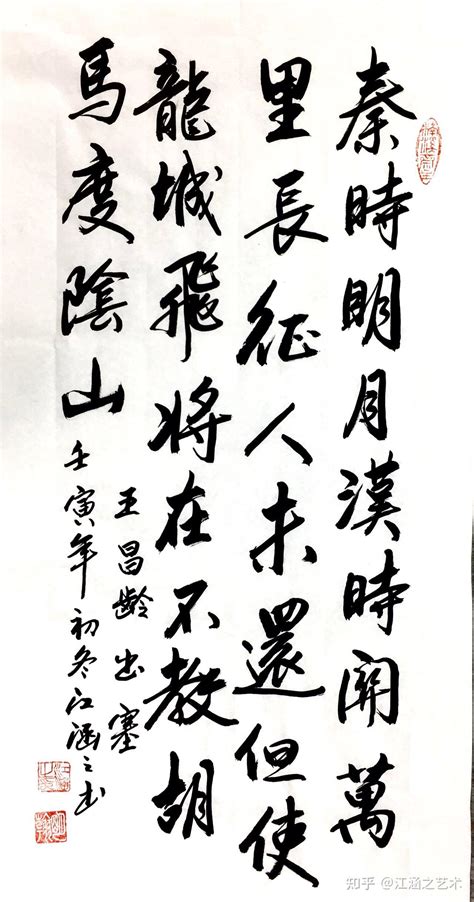 秦時明月漢時關萬
里長征人未還但使
龍城飛將在不教胡
馬度陰山
王昌齡出塞
壬寅年初冬江涵之书
知乎 @江涵之艺术